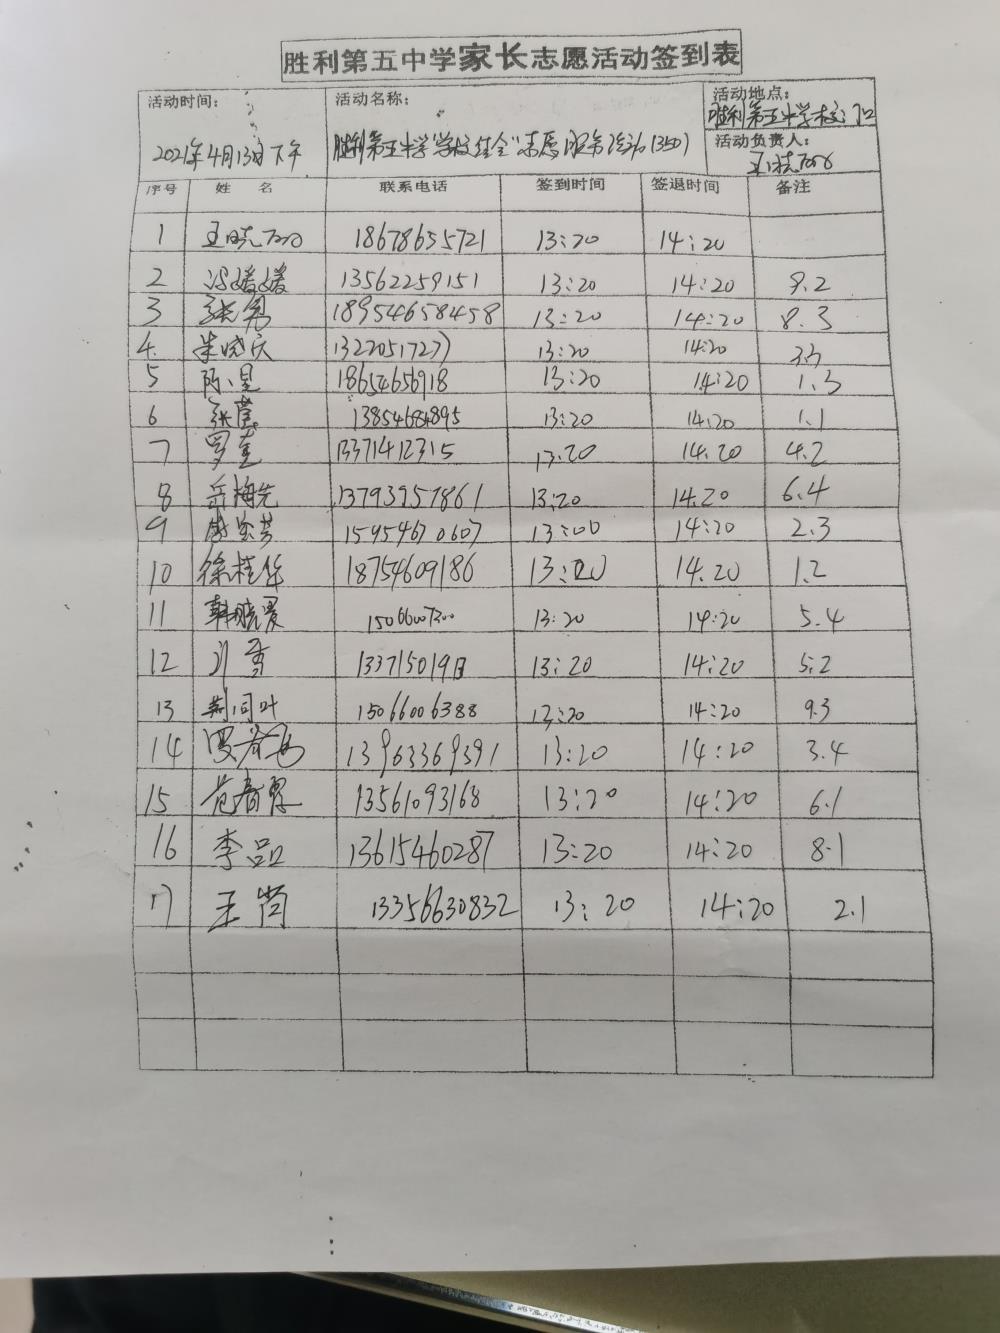 胜利第五中学家长志愿活动签到表
活动时间： 活动名称： 活动地点：
胜利第五中学校门口
2021年4月13日下午 胜利第五中学"学校安全"志愿服务活动(350)
活动负责人：
王晓
序号 姓名 联系电话 签到时间 签退时间 备注
1 王晓 18678655721 13:20 14:20
2 冯媛媛 13562259151 13:20 14:20 9.2
3 张勇 18954658458 13:20 14:20 8.3
4. 朱晓庆 13220517277 13:20 14:20 3.3
5 陈星 18654656918 13:20 14:20 1.3
6 张莹 13854684895 13:20 14:20 1.1
7 罗奎 13371412315 13:20 14:20 4.2
8 岳梅先 13793957861 13:20 14:20 6.4
9 15954670607 13:00 14:20 2.3
10 徐桂华 18754609186 13:20 14:20 1.2
11 韩晓霞 15066007300 13:20 14:20 5.4
12 刘雪 13:20 14:20 5.2
13 荆同叶 15066006388 13:20 14:20 9.3
14 13963369391 13:20 14:20 3.4
15 范春 13561093168 13:20 14:20 6.1
16 李品 13615460287 13:20 14:20 8.1
17 王尚 13356630832 13:20 14:20 2.1